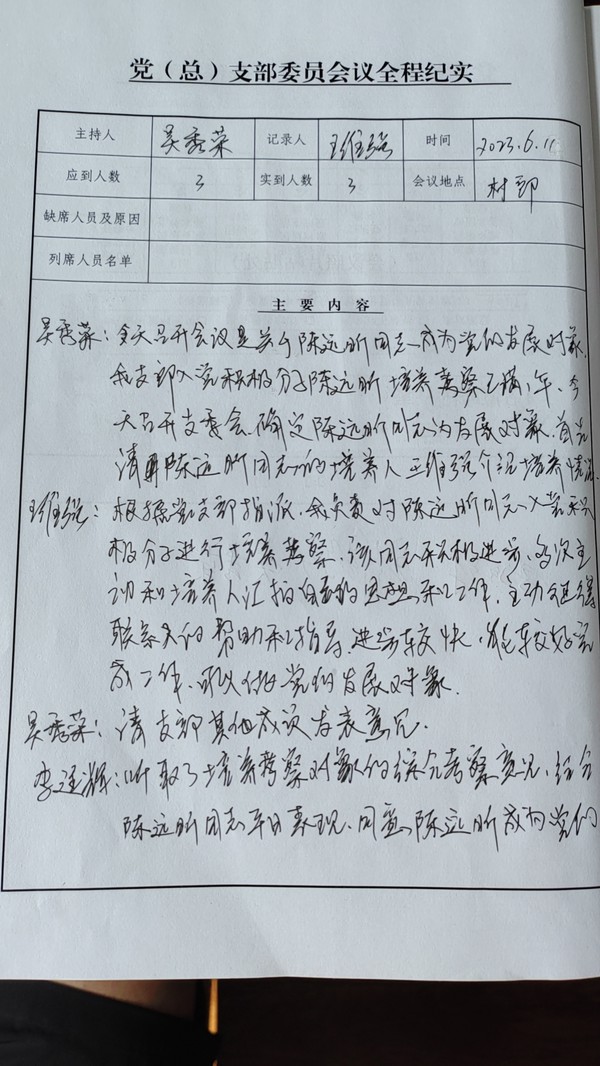 党（总）支部委员会议全程纪实
主持人 吴秀荣 记录人 王维强 时间 2023.6.11
应到人数 3 实到人数 3 会议地点 村部
缺席人员及原因
列席人员名单
主要内容
吴秀荣：今天召开会议是关于陈远昕同志成为党的发展对象.
我支部入党积极分子陈远昕培养考察已满1年.今
天召开支委会、确定陈远昕同志为发展对象.首先
请陈远昕同志的培养人王维强介绍培养情况
王维强：根据党支部指派.我负责对陈远昕同志入党积
极分子进行培养考察.该同志积极进步.多次主
动和培养人汇报自己的思想和工作.主动
联系人的帮助和指导.进步较快.能较好完
成工作.可以作为党的发展对象.
吴秀荣：请支部其他成员发表意见.
李 辉：听取了培养考察对象的综合考察意见、结合
陈远昕同志平日表现、同意陈远昕成为党的